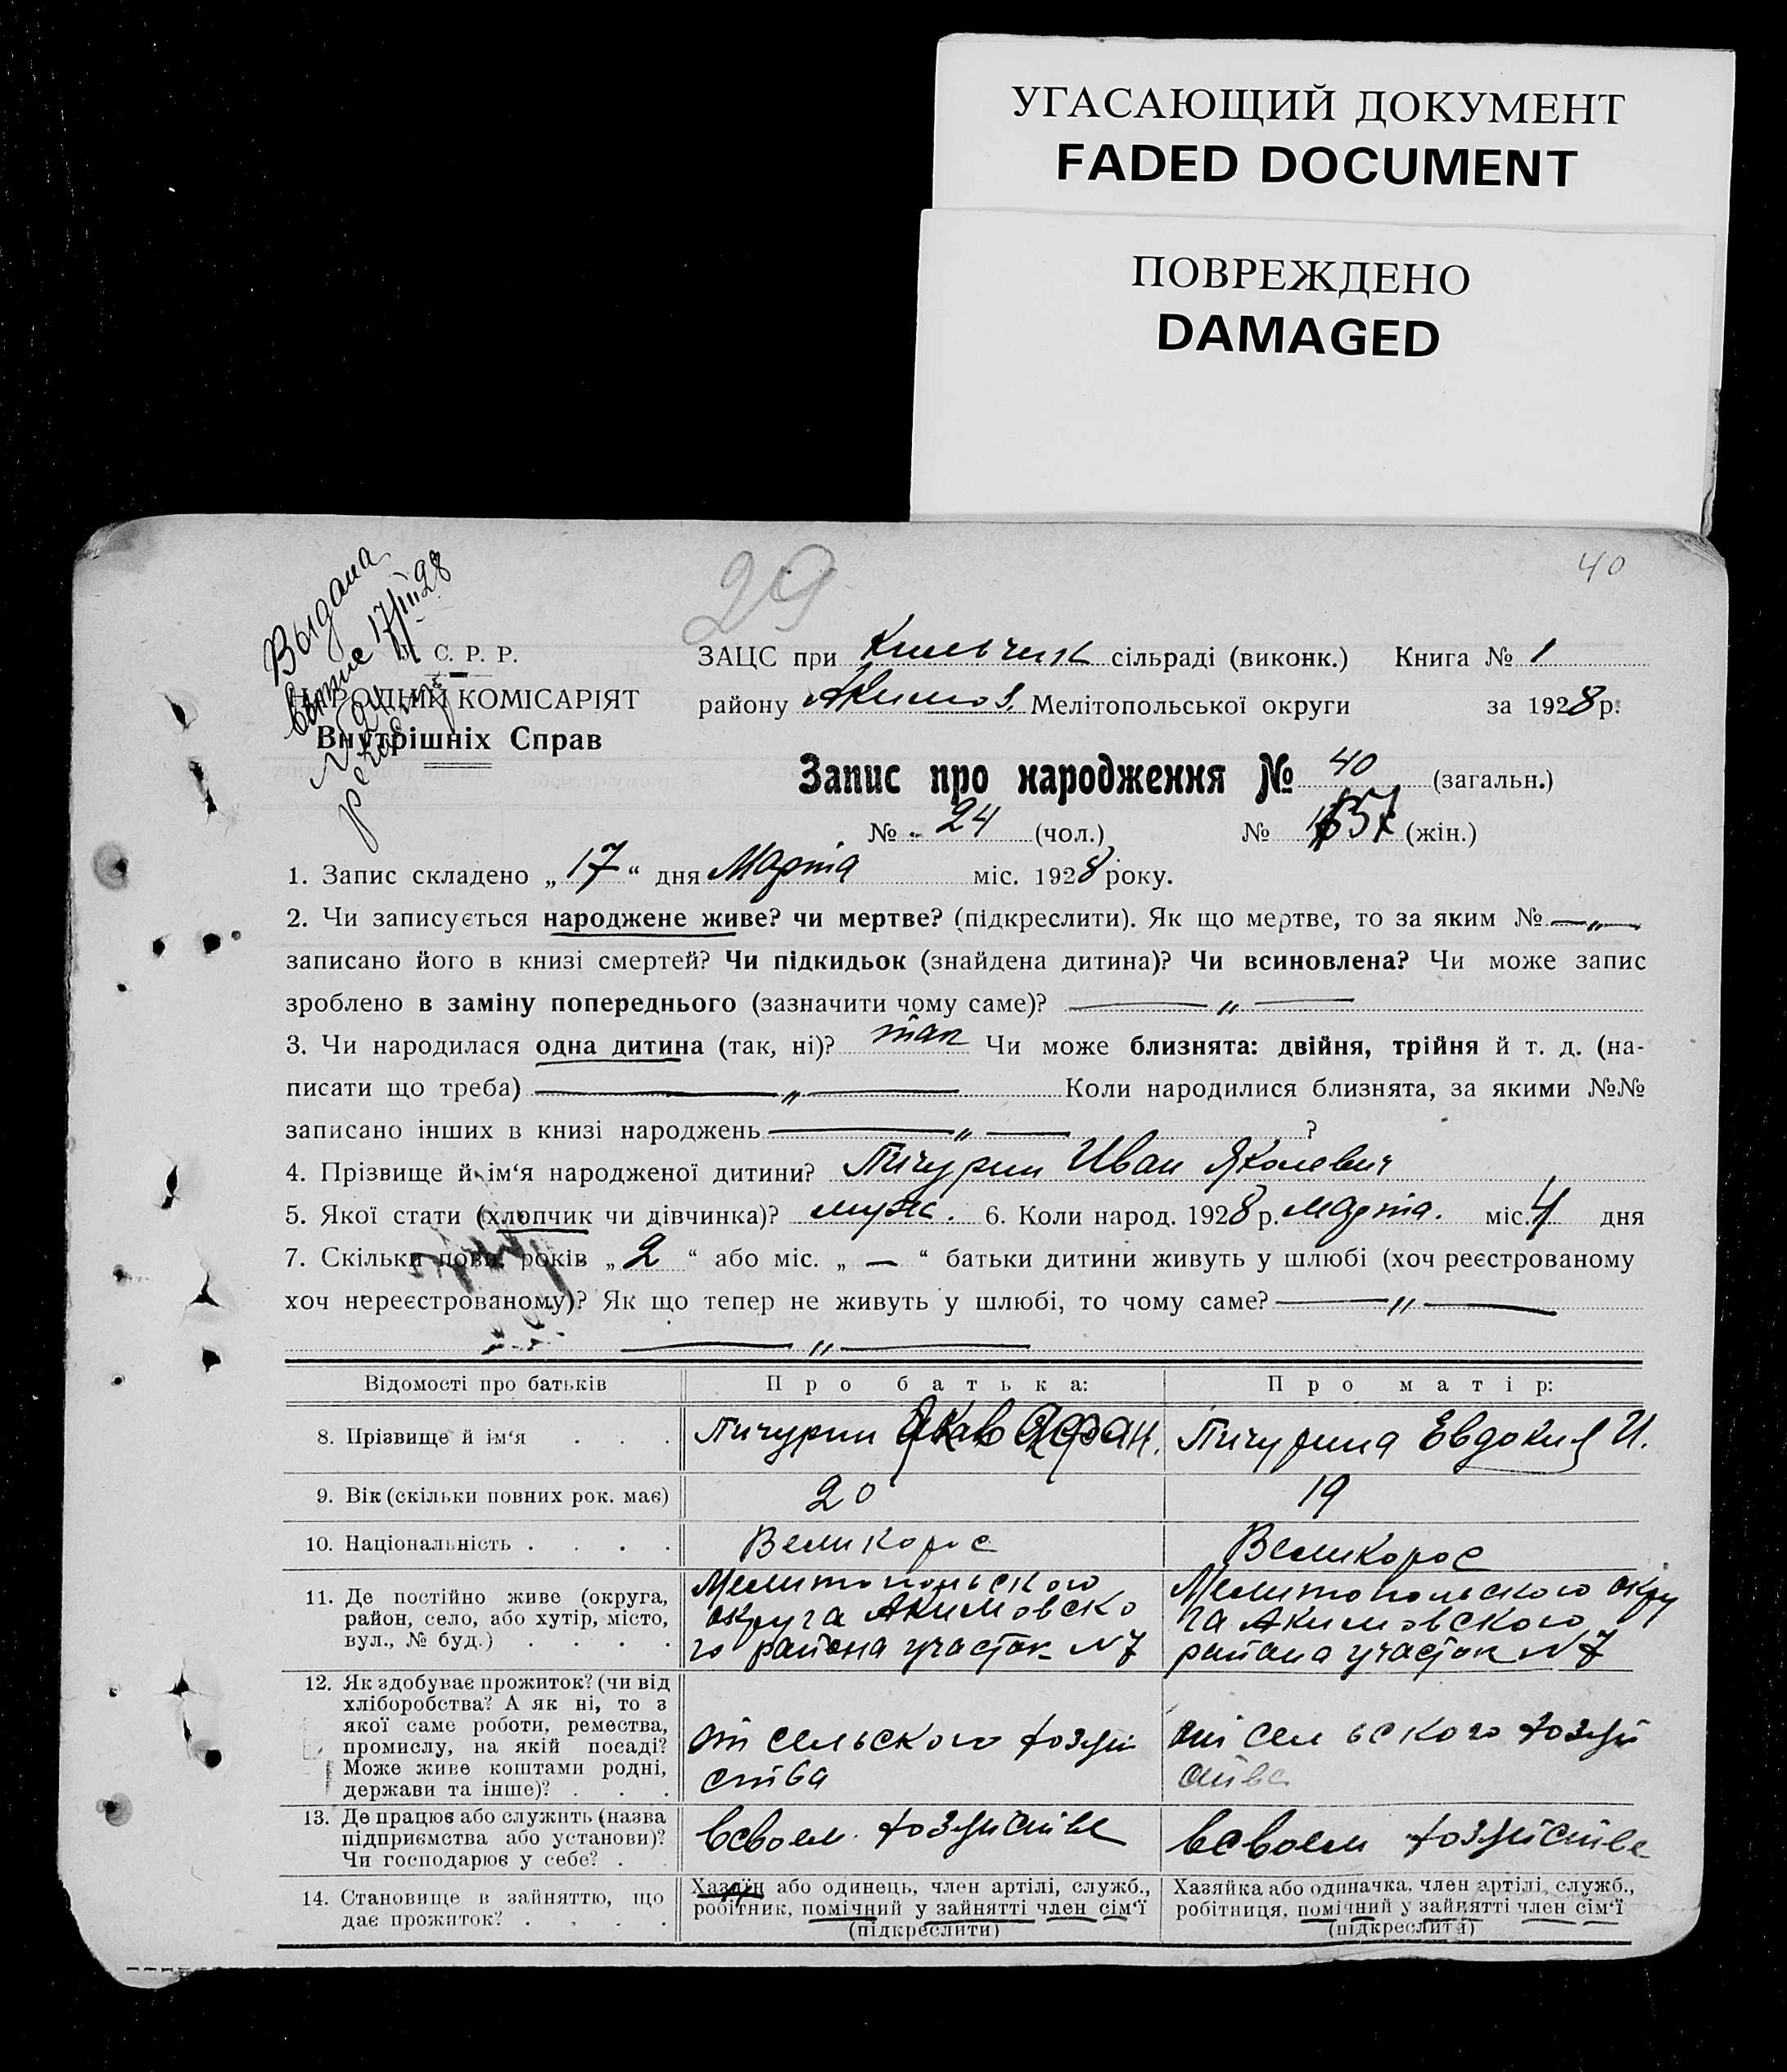 УГАСАЮЩИЙ ДОКУМЕНТ
FADED DOCUMENT
ПОВРЕЖДЕНО
DAMAGED
40
29
Выдана
17/III 28
С. Р. Р.
НАРОДНИЙ КОМІСАРІЯТ
Внутрішніх Справ
ЗАЦС при сільраді (виконк.) Книга № 1
району Акимов. Мелітопольської округи за 1928 р.
Запис про народження № 40 (загальн.)
№ 24 (чол.) № (жін.)
1. Запис складено „ 17 “ дня Марта міс. 1928 року.
2. Чи записується народжене живе? чи мертве? (підкреслити). Як що мертве, то за яким № —„—
записано його в книзі смертей? Чи підкидьок (знайдена дитина)? Чи всиновлена? Чи може запис
зроблено в заміну попереднього (зазначити чому саме)? —„—
3. Чи народилася одна дитина (так, ні)? так Чи може близнята: двійня, трійня й т. д. (на-
писати що треба) —„— Коли народилися близнята, за якими №№
записано інших в книзі народжень —„— ?
4. Прізвище й ім‘я народженої дитини? Пичурин Иван Яковлевич
5. Якої стати (хлопчик чи дівчинка)? муж. 6. Коли народ. 1928 р. марта. міс. 4 дня
7. Скільки повн. років „ 2 “ або міс. „ — “ батьки дитини живуть у шлюбі (хоч реєстрованому
хоч нереєстрованому)? Як що тепер не живуть у шлюбі, то чому саме? —„—
—„—
Відомості про батьків Про батька: Про матір:
8. Прізвище й ім‘я . . . Пичурин Яков Афан. Пичурина Евдокия И.
9. Вік (скільки повних рок. має) 20 19
10. Національність . . . . Великорос Великорос
11. Де постійно живе (округа,
район, село, або хутір, місто,
вул., № буд.) . . . .
Мелитопольского
округа Акимовско
го района участок N 7
Мелитопольского окру
га Акимовского
района участок N 7
12. Як здобуває прожиток? (чи від
хліборобства? А як ні, то з
якої саме роботи, ремества,
промислу, на якій посаді?
Може живе коштами родні,
держави та інше)? . . .
от сельского хозяй
ства
от сельского хозяй
ства
13. Де працює або служить (назва
підприємства або установи)?
Чи господарює у себе? . .
в своем хозяйстве
в своем хозяйстве
14. Становище в зайняттю, що
дає прожиток? . . . .
Хазяїн або одинець, член артілі, служб.,
робітник, помічний у зайнятті член сім‘ї
(підкреслити)
Хазяйка або одиначка, член артілі, служб.,
робітниця, помічний у зайнятті член сім‘ї
(підкреслити)